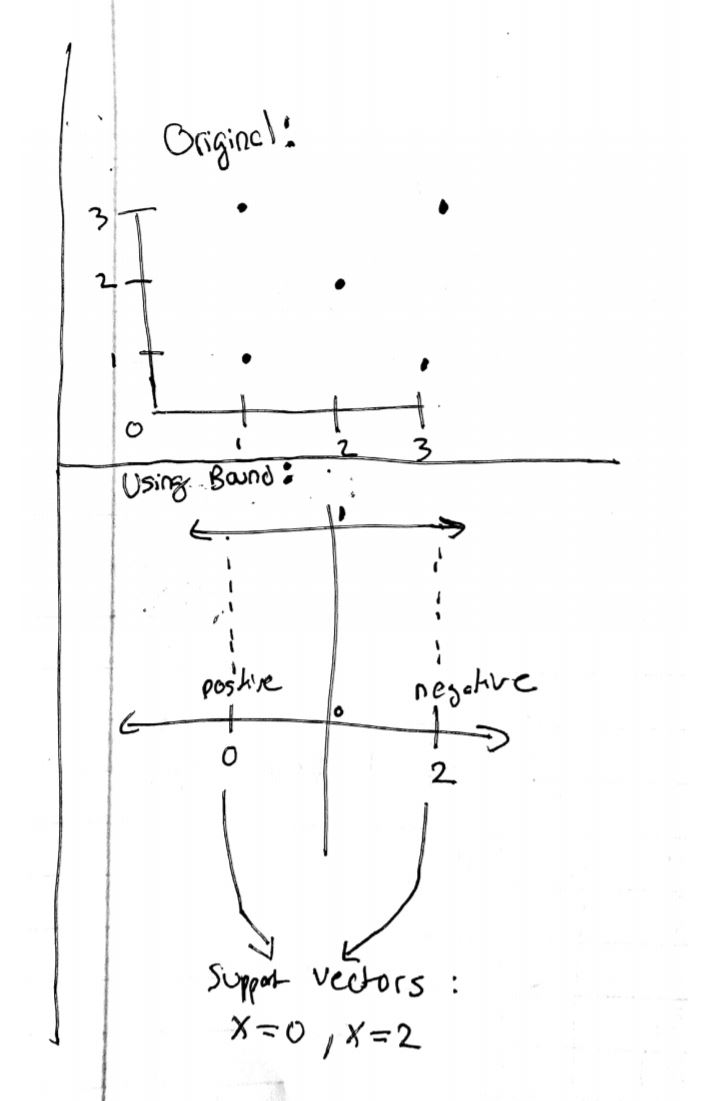 Original:
3
2
1
0
1 2 3
Using Bound:
1
positive negative
0
0 2
Support vectors :
x=0 , x=2